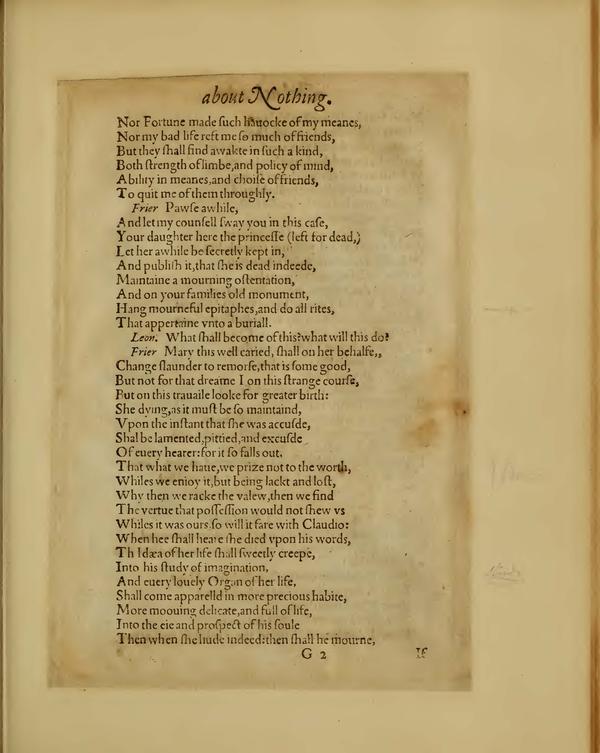 about Nothing.
Nor Fortune made ſuch hauocke of my meanes,
Nor my bad life reft me ſo much of friends,
But they ſhall find awakte in ſuch a kind,
Both ſtrength of limbe, and policy of mind,
Ability in meanes, and choiſe of friends,
To quit me of them throughly.
Frier Pawſe awhile,
And let my counſell ſway you in this caſe,
Your daughter here the princeſſe (left for dead,)
Let her awhile be ſecretly kept in,
And publiſh it, that ſhe is dead indeede,
Maintaine a mourning oſtentation,
And on your families old monument,
Hang mourneful epitaphes, and do all rites,
That appertaine vnto a buriall.
Leon. What ſhall become of this? what will this do?
Frier Mary this well caried, ſhall on her behalfe,,
Change ſlaunder to remorſe, that is ſome good,
But not for that dreame I on this ſtrange courſe,
But on this trauaile looke for greater birth:
She dying, as it muſt be ſo maintaind,
Vpon the inſtant that ſhe was accuſde,
Shal be lamented, pittied, and excuſde
Of euery hearer: for it ſo falls out,
That what we haue, we prize not to the worth,
Whiles we enioy it, but being lackt and loſt,
Why then we racke the valew, then we find
The vertue that poſſeſſion would not ſhew vs
Whiles it was ours, ſo will it fare with Claudio:
When hee ſhall heare ſhe died vpon his words,
Th Idæa of her life ſhall ſweetly creepe,
Into his ſtudy of imagination,
And euery louely Organ of her life,
Shall come apparelld in more precious habite,
More moouing delicate, and full of life,
Into the eie and proſpect of his ſoule
Then when ſhe liude indeed: then ſhall he mourne,
G 2 If